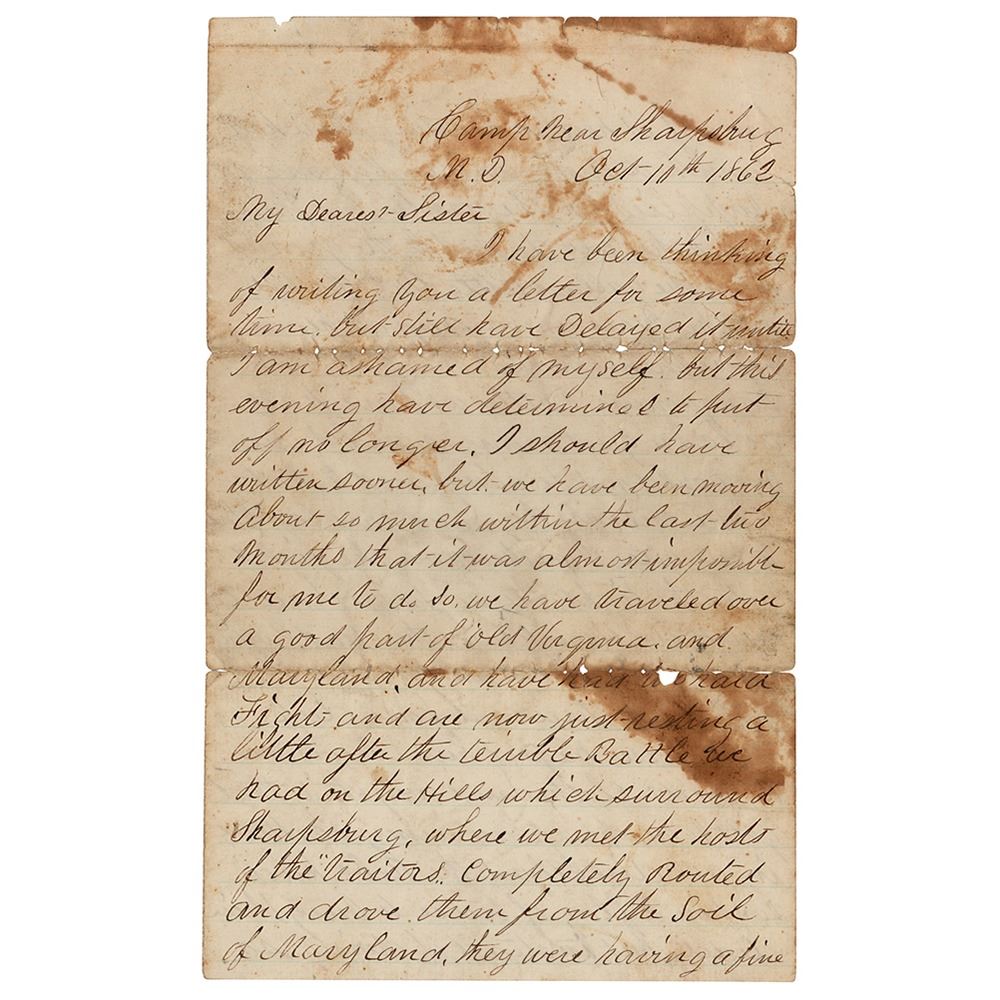 Camp Near Sharpsburg
M.D. Oct 10th 1862
My Dearest Sister
I have been thinking
of writing you a letter for some
time. but still have Delayed it untill
I am ashamed of myself. but this
evening have determined to put
off no longer. I should have
written sooner. but we have been moving
about so much within the last two
months that it was almost impossible
for me to do so. we have traveled over
a good part of "old Virginia. and
Maryland. and have had hard
Fight and are now just resting a
little after the terrible Battle we
had on the Hills which surround
Sharpsburg. where we met the hosts
of the "traitors". Completely Routed
and drove them from the Soil
of Maryland. they were having a fine